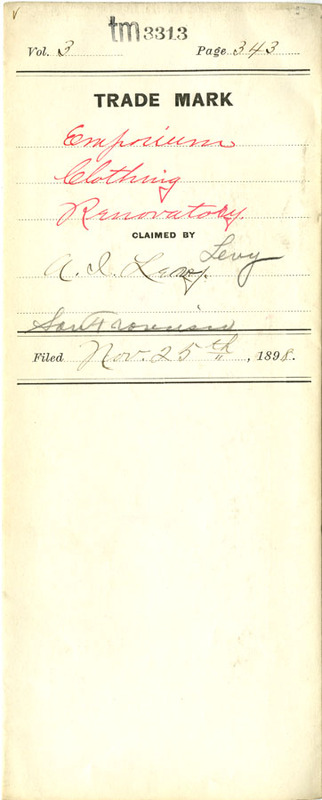 tm3313
Vol. 3 Page 343
TRADE MARK
Emporium
Clothing
Renovatory.
CLAIMED BY
A. I. Levy. Levy
San Francisco
Filed Nov. 25th, 1898.